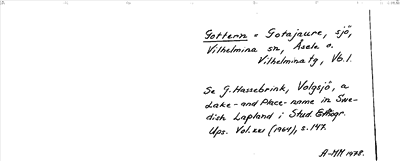 Gottern = Gotajaure, sjö,
Vilhelmina sn, Åsele o.
Vilhelmina tg, Vb.l.
Se G. Hasselbrink, Volgsjö, a
Lake- and Place-name in Swe-
dish Lapland i Stud. Ethnogr.
Ups. Vol. XXI (1964), s. 147.
A-MM 1978.